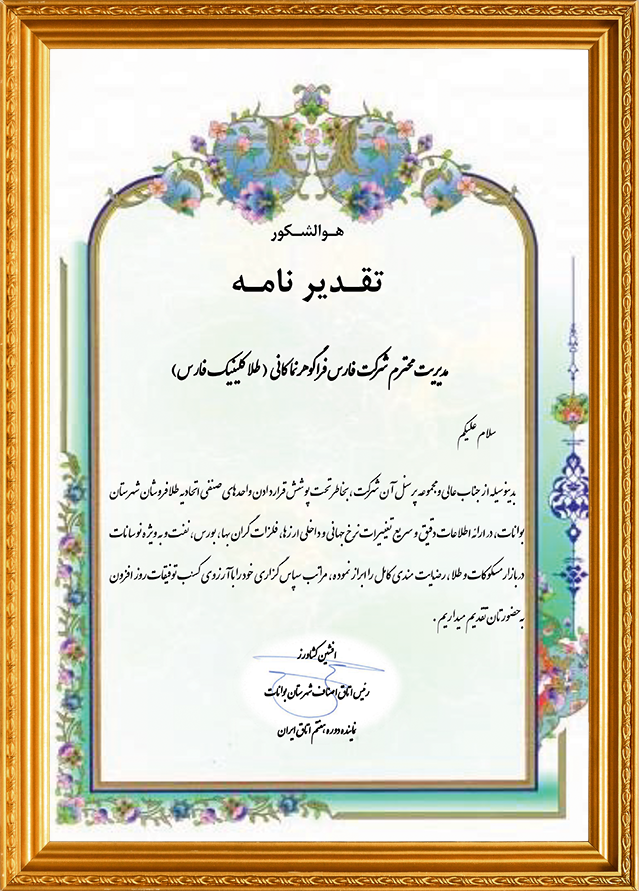 هـوالشـکور
تقـدیر نامـه
مدیریت محترم شرکت فارس فراگوهر نما کانی ( طلا کلینیک فارس )
سلام علیکم
بدینوسیله از جناب عالی و مجموعه پرسنل آن شرکت ، بخاطر تحت پوشش قرار دادن واحدهای صنفی اتحادیه طلا فروشان شهرستان
بوانات، در ارائه اطلاعات دقیق و سریع تغییرات نرخ جهانی و داخلی ارزها، فلزات گران بها، بورس، نفت و به ویژه نوسانات
در بازار مسکوکات و طلا ، رضایت مندی کامل را ابراز نموده ، مراتب سپاس گزاری خود را با آرزوی کسب توفیقات روز افزون
به حضورتان تقدیم میداریم .
افشین کشاورز
رئیس اتاق اصناف شهرستان بوانات
نماینده دوره هشتم اتاق ایران